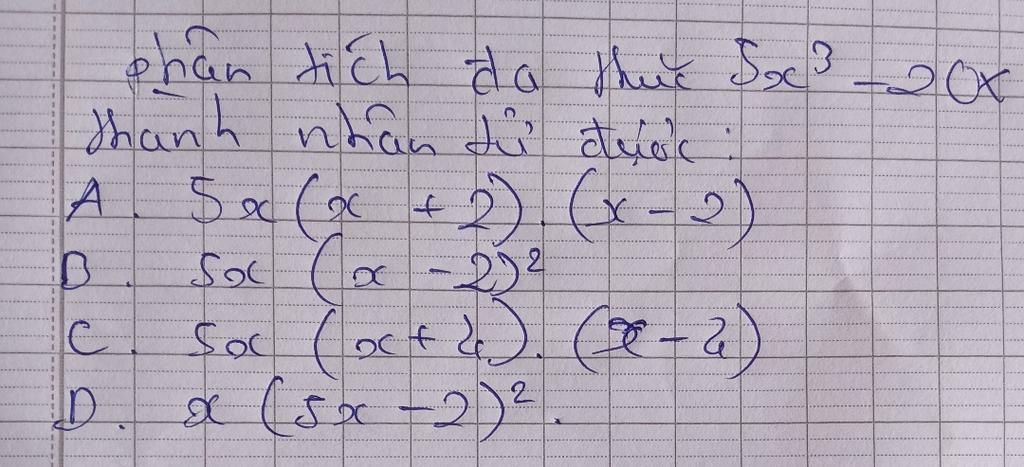 phân tích đa thức 5x³ - 20x
thanh nhân tử được :
A. 5x(x + 2).(x - 2)
B. 5x (x - 2)²
C. 5x (x + 4).(x - 4)
D. x (5x - 2)².